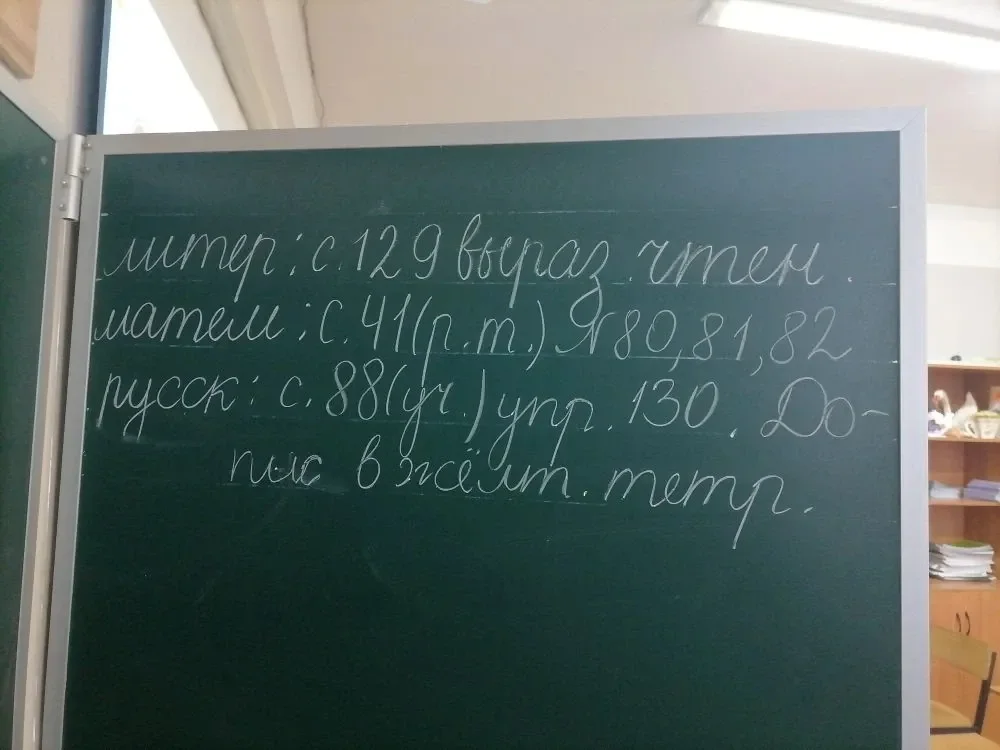 литер: с. 129 выраз. чтен.
матем: с. 41 (р.т.) № 80, 81, 82
русск: с. 88 (уч.) упр. 130. До-
пис в жёлт. тетр.